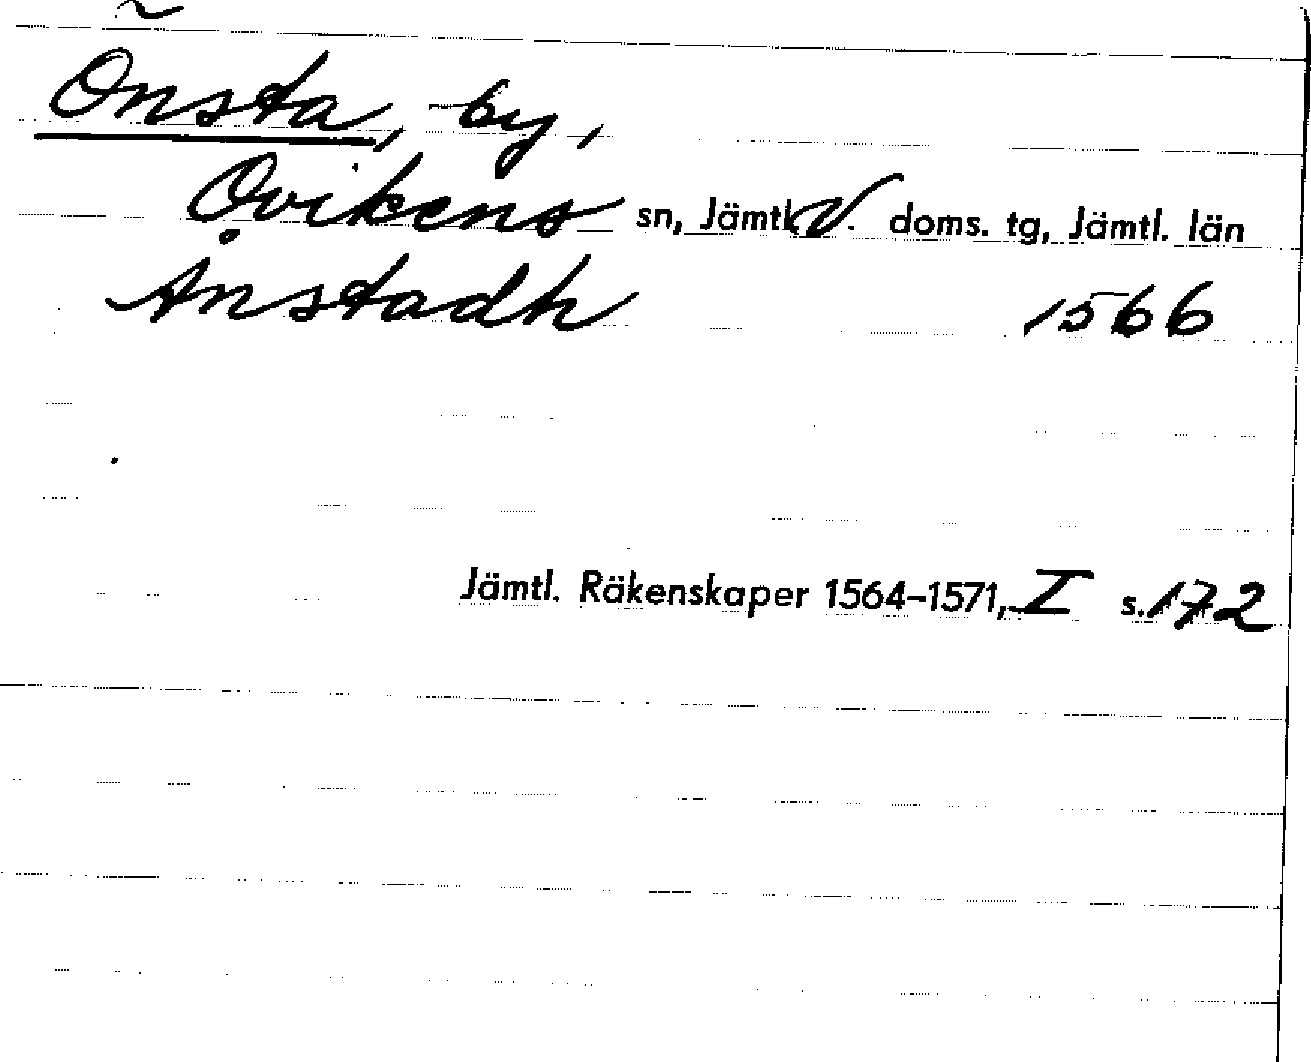 Önsta, by,
Ovikens sn, Jämtl. V. doms. tg, Jämtl. län
Ånstadh 1566
Jämtl. Räkenskaper 1564–1571, I s. 172